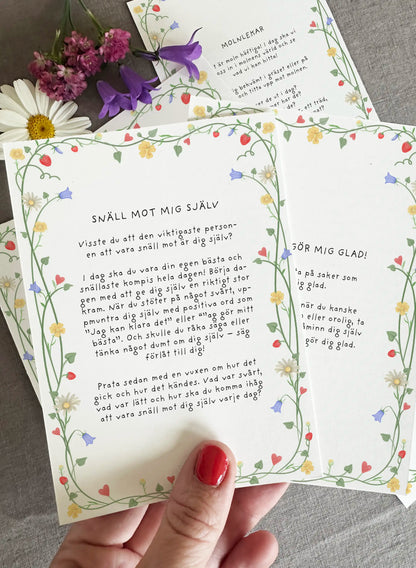 MOLNLEKAR
är moln häftiga! I dag ska vi
oss in i molnens värld och se
vad vi kan hitta!
bekvämt i gräset eller på
och titta upp mot molnen.
SNÄLL MOT MIG SJÄLV
Visste du att den viktigaste person-
en att vara snäll mot är dig själv?
I dag ska du vara din egen bästa och
snällaste kompis hela dagen! Börja da-
gen med att ge dig själv en riktigt stor
kram. När du stöter på något svårt, up-
pmuntra dig själv med positiva ord som
"Jag kan klara det" eller "Jag gör mitt
bästa". Och skulle du råka säga eller
tänka något dumt om dig själv – säg
förlåt till dig!
Prata sedan med en vuxen om hur det
gick och hur det kändes. Vad var svårt,
vad var lätt och hur ska du komma ihåg
att vara snäll mot dig själv varje dag?
GÖR MIG GLAD!
på saker som
ig glad.
du kanske
eller orolig, ta
dig själv
gör dig glad.